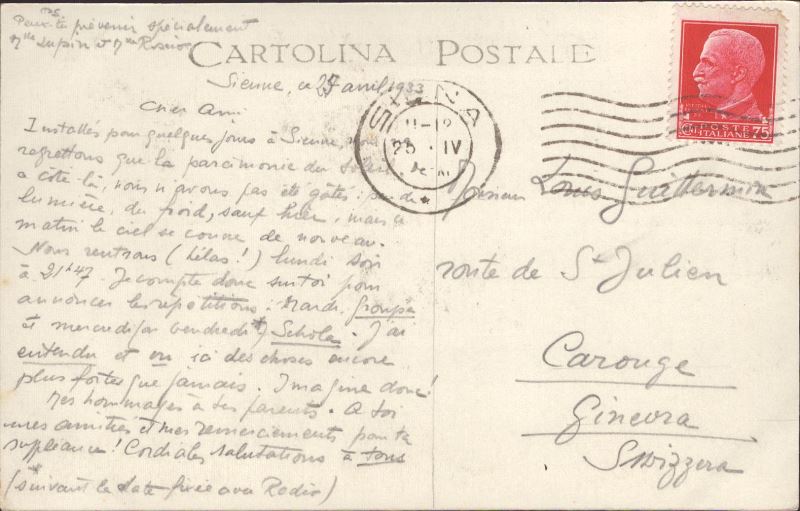 Peux-tu prévenir spécialement
Mlle Lupin et Mme
CARTOLINA POSTALE
Sienne, ce 25 avril 1933
Cher Ami
Installés pour quelques jours à Sienne, nous
regrettons que la parcimonie du Soleil
à côté là, nous n'avons pas été gâtés: peu de
lumière, du froid, sauf hier, mais ce
matin le ciel se couvre de nouveau.
Nous rentrons (hélas!) lundi soir
à 21h47. Je compte donc sur toi pour
annoncer les répétitions: mardi, groupe
et mercredi (ou vendredi*) Schola. J'ai
entendu et vu ici des choses encore
plus fortes que jamais. Imagine donc!
Mes hommages à tes parents. A toi
mes amitiés et mes remerciements pour ta
suppléance! Cordiales salutations à tous
*(suivant la date fixée avec)
SIENA
11-12
25 IV
POSTE
ITALIANE
75
Monsieur Louis
route de St Julien
Carouge
Ginevra
Svizzera